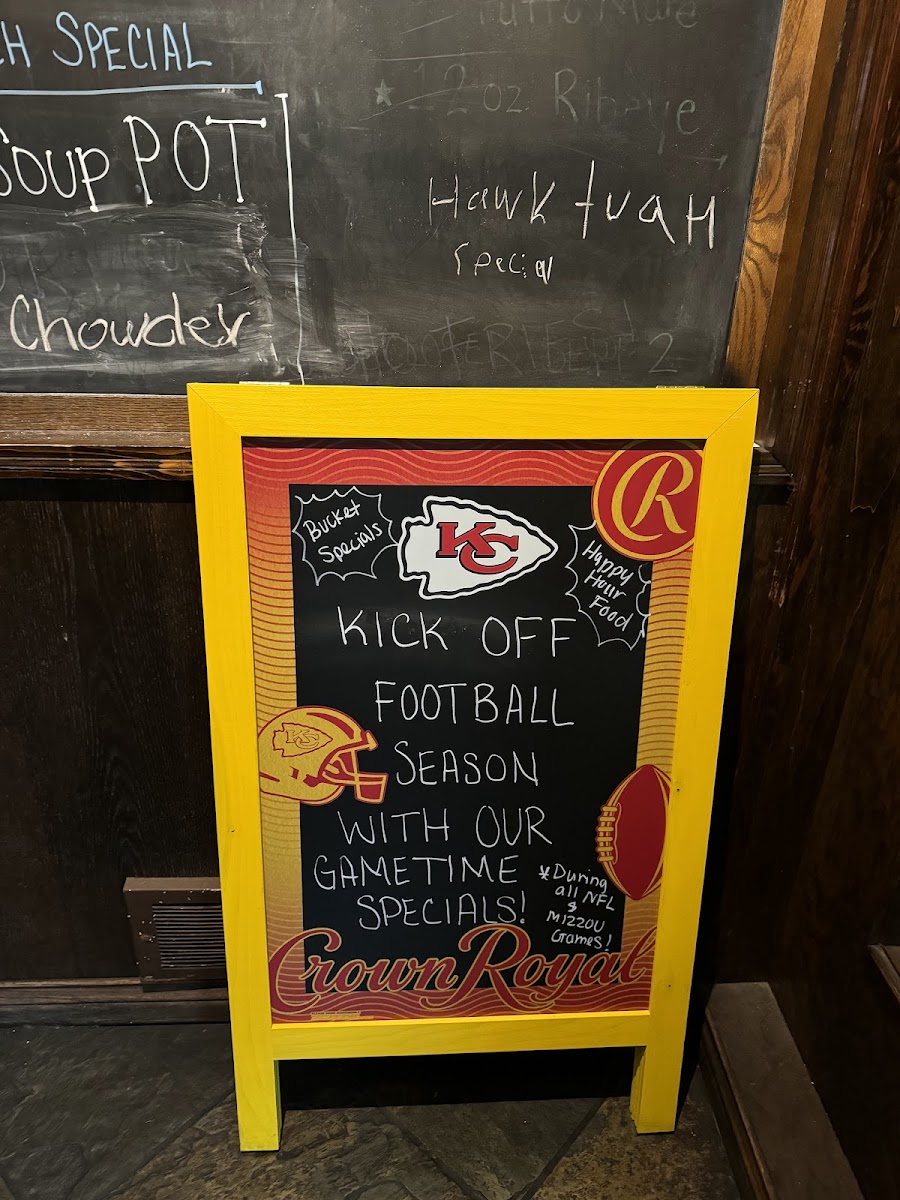 CH SPECIAL
Soup POT
Chowder
12oz Ribeye
Hawk tuah
Special
Bucket
Specials
KC
R
Happy
Hour
Food
KICK OFF
FOOTBALL
KC
SEASON
WITH OUR
GAMETIME
SPECIALS!
*During
all NFL
&
MIZZOU
Games!
Crown Royal